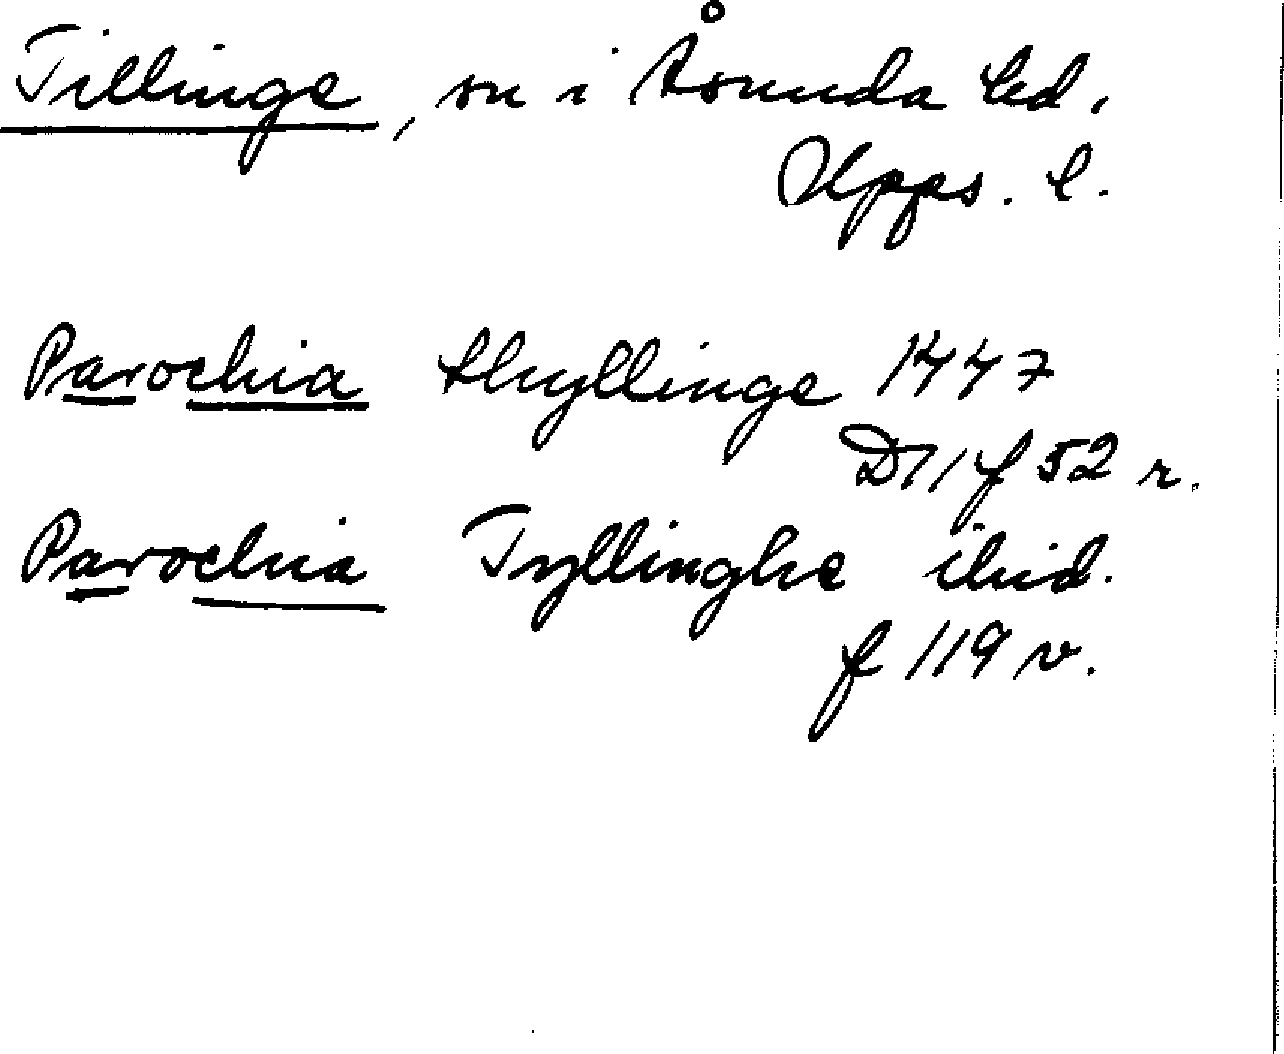 Tillinge, sn i Åsunda hd,
Upps. l.
Parochia thyllinge 1447
D11 f 52 r.
Parochia Tyllinghe ibid.
f 119 v.